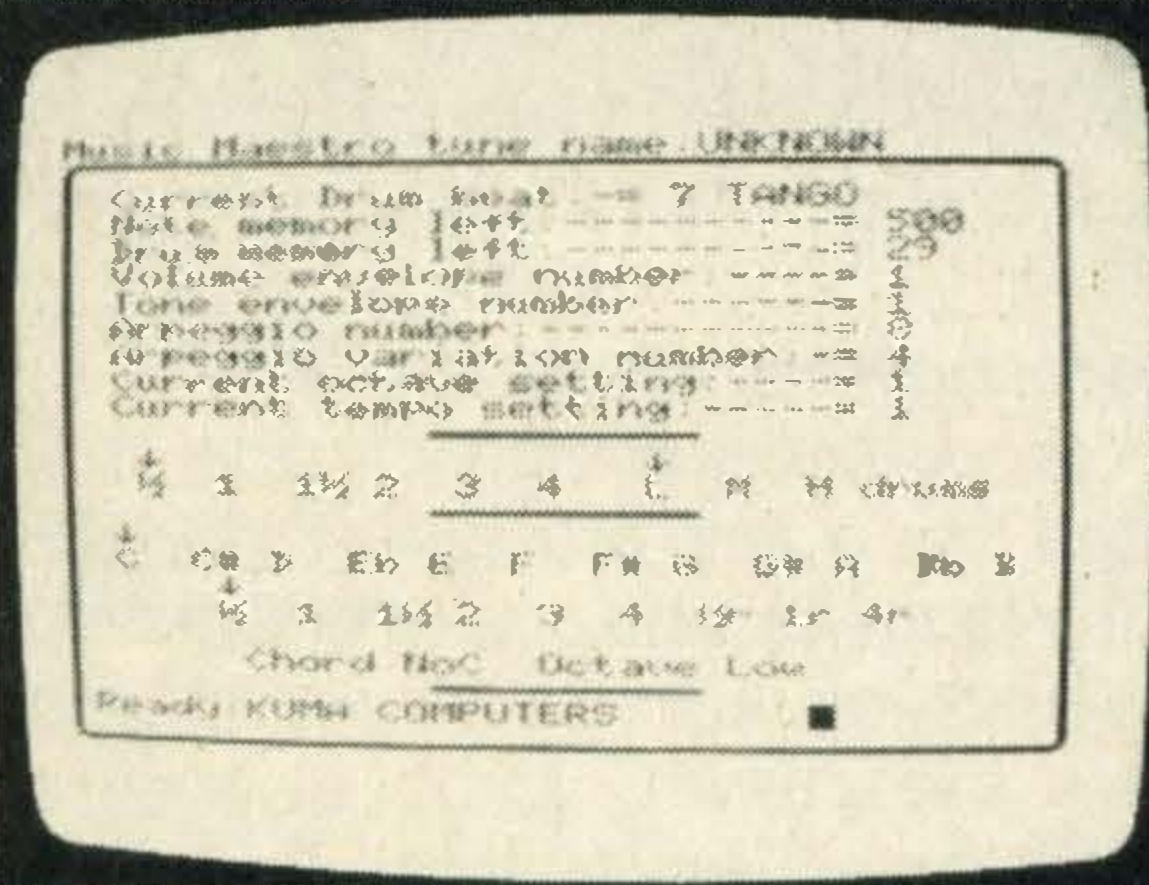 Music Maestro tune name:UNKNOWN
Current Drum beat -= 7 TANGO
Note memory left ----------= 500
Drum memory left ----------= 29
Volume envelope number ----= 1
Tone envelope number ------=
Arpeggio number:-----------= 0
Arpeggio variation number -= 4
Current octave setting:----= 1
Current tempo setting:-----= 1
½ 1 1½ 2 3 4 L M H drums
C C# D Eb E F F# G G# A Bb B
½ 1 1½ 2 3 4 ½r 1r 4r
Chord NoC Octave Low
Ready KUMA COMPUTERS